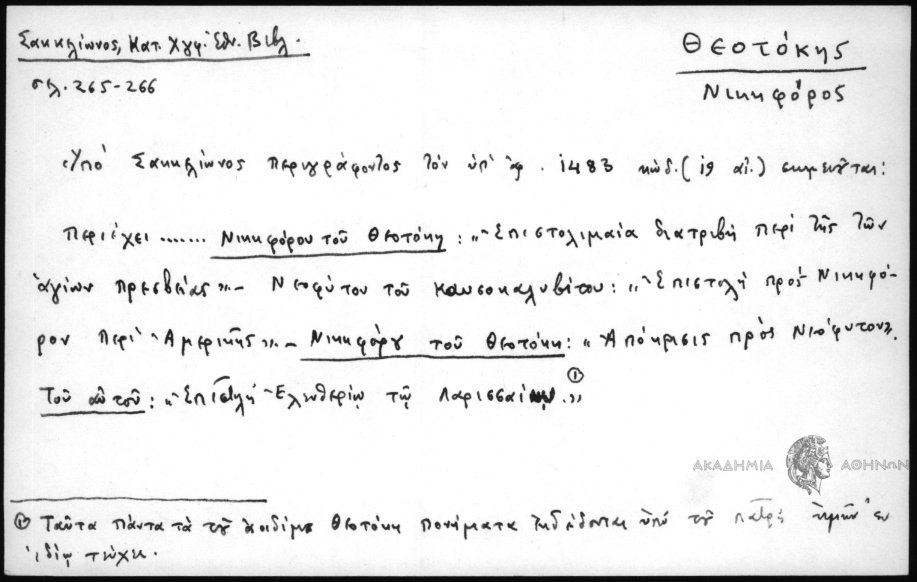 Σακκελίωνος, Κατ. Χγφ. Ἐθν. Βιβλ.
σελ. 265-266
Θεοτόκης
Νικηφόρος
Ὑπό Σακκελίωνος περιγράφοντος τόν ὑπ' ἀρ. 1483 κώδ. (19 αἰ.) σημειοῦται:
Περιέχει ....... Νικηφόρου τοῦ Θεοτόκη: "Ἐπιστολιμαία διατριβή περί τῆς τῶν
ἁγίων πρεσβείας" - Νεοφύτου τοῦ Καυσοκαλυβίτου: "Ἐπιστολή πρός Νικηφό-
ρον περί Ἀμερικῆς" - Νικηφόρου τοῦ Θεοτόκη: "Ἀπόκρισις πρός Νεόφυτον".
Τοῦ αὐτοῦ: "Ἐπιστολή Ἐλευθερίῳ τῷ Λαρισσαίῳ." ①
① Ταῦτα πάντα τὰ τοῦ ἀοιδίμου Θεοτόκη πονήματα ἐκδέδονται ὑπό τοῦ πατρός ἡμῶν ἐν
ἰδίῳ τεύχει.
ΑΚΑΔΗΜΙΑ ΑΘΗΝΩΝ